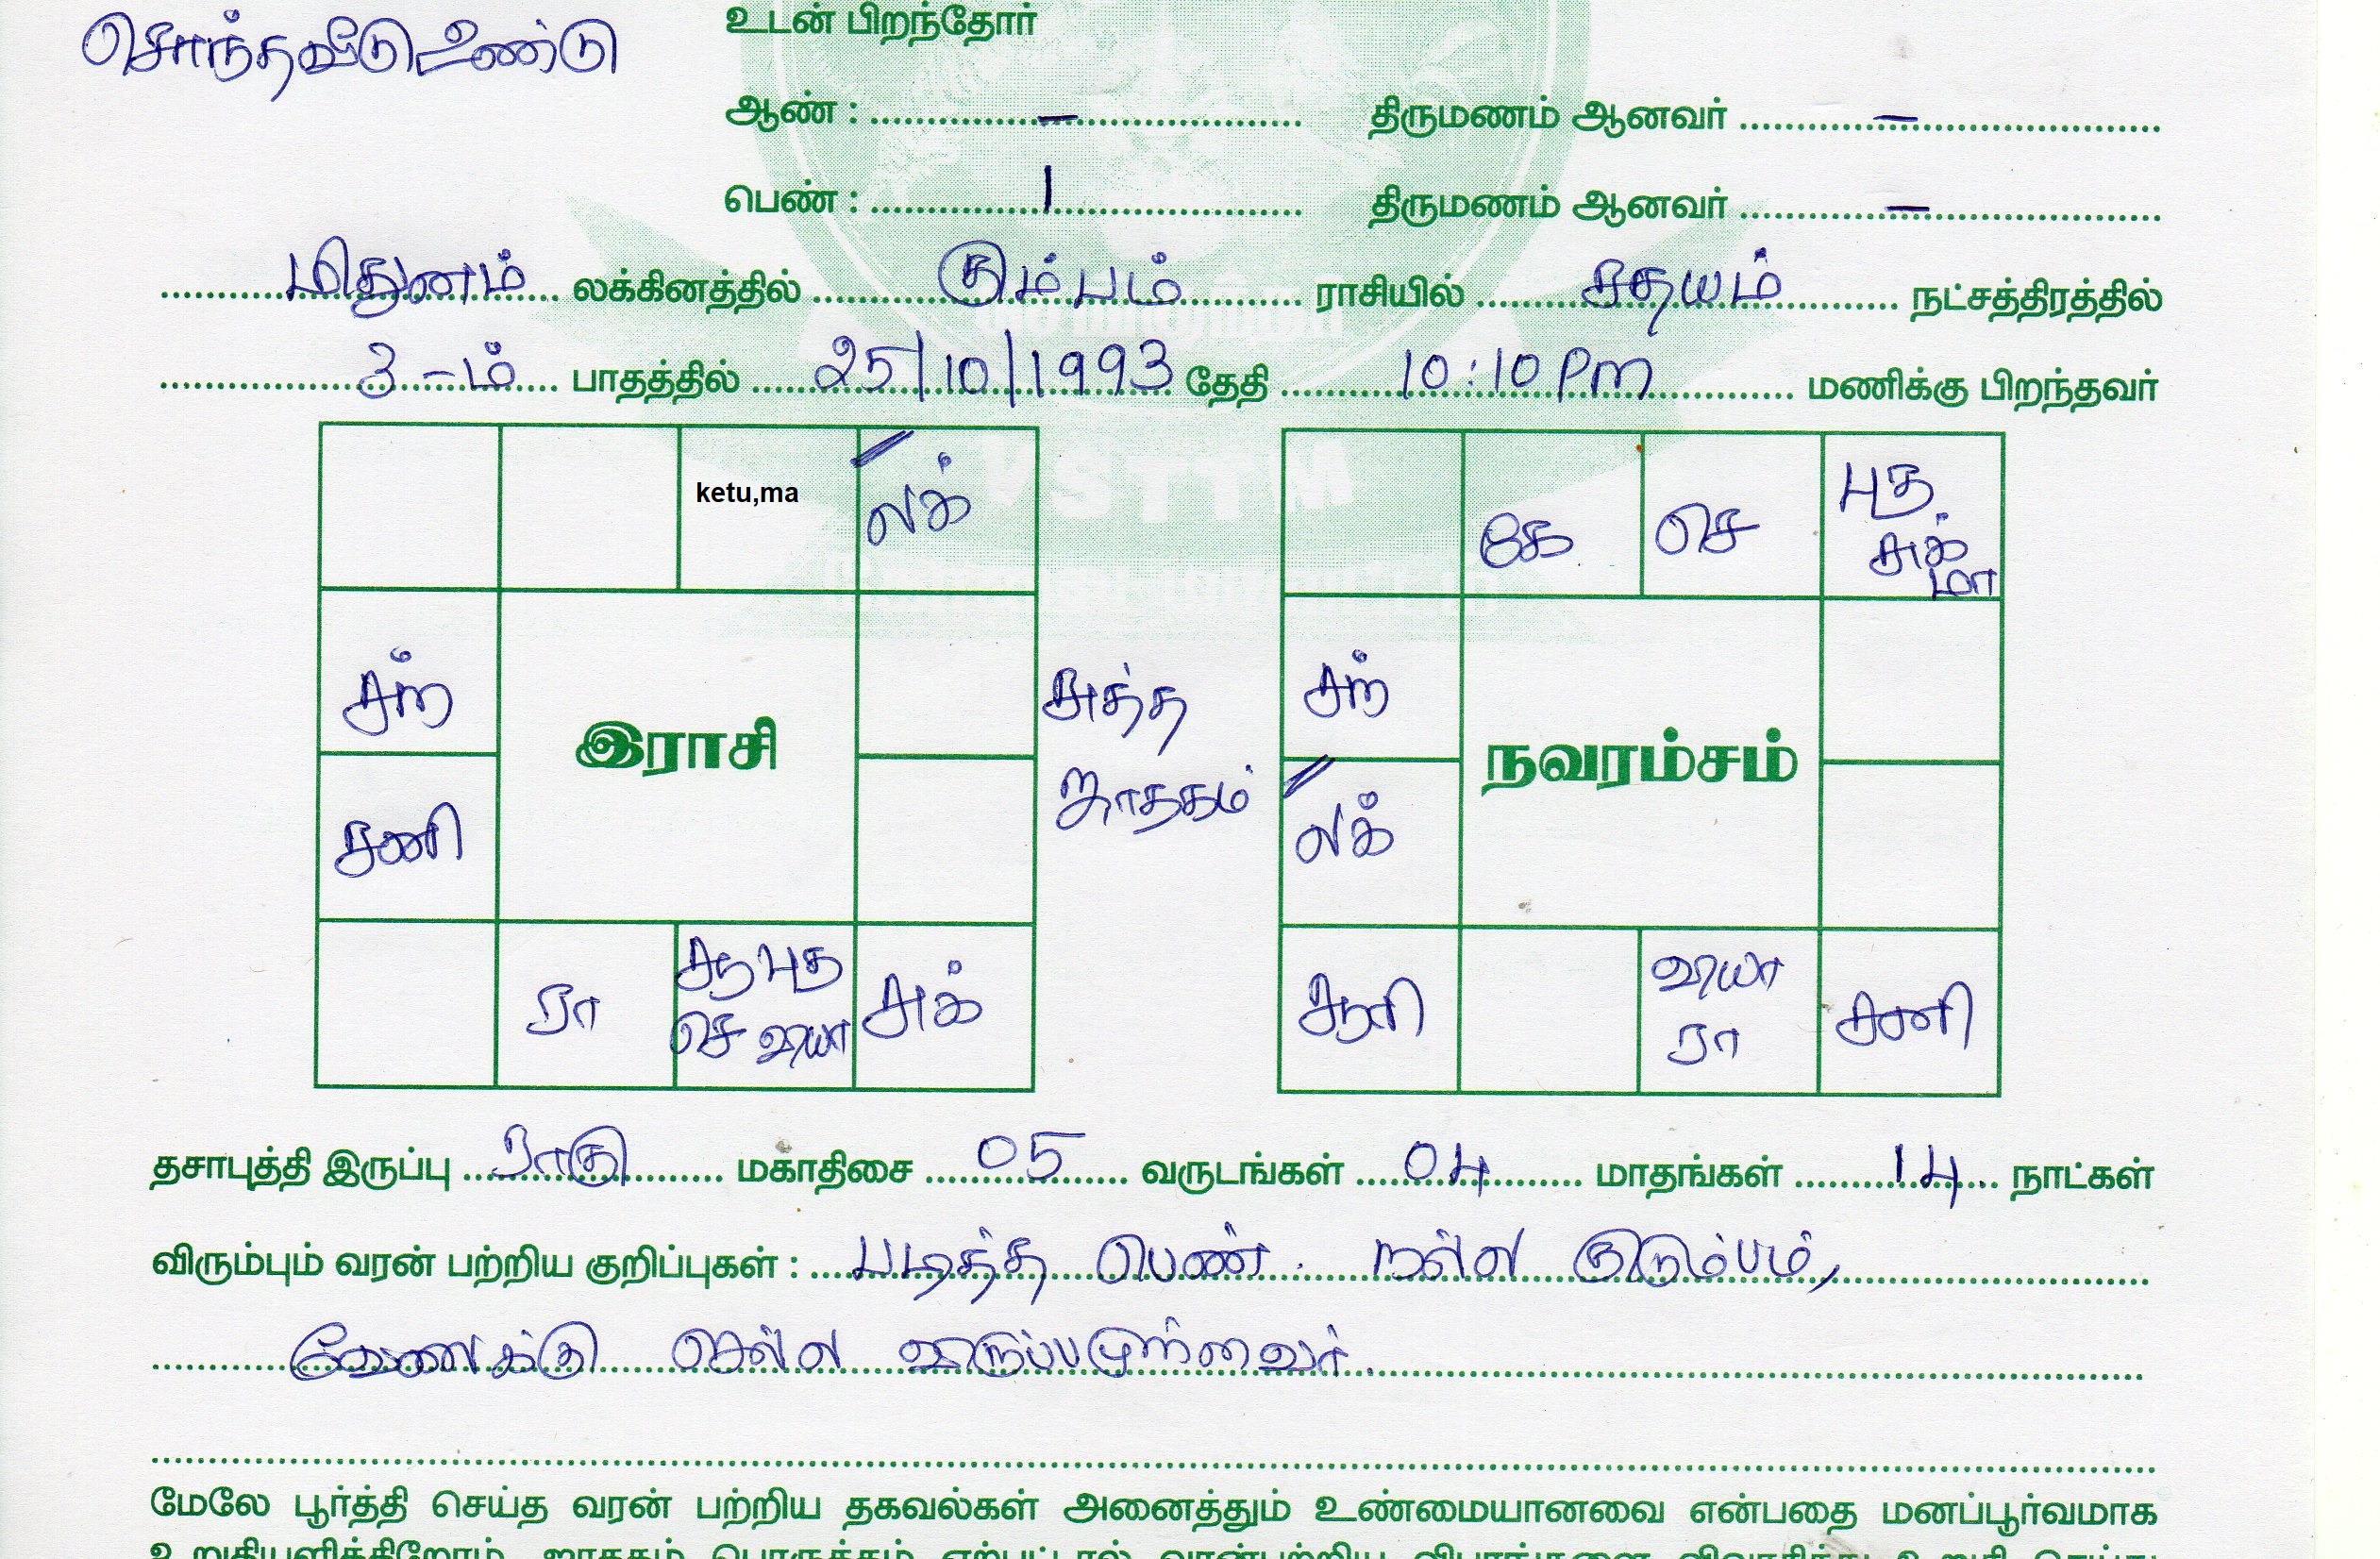 சொந்தவீடு உண்டு
உடன் பிறந்தோர்
ஆண் : – திருமணம் ஆனவர் –
பெண் : 1 திருமணம் ஆனவர் –
மிதுனம் லக்கினத்தில் கும்பம் ராசியில் சதயம் நட்சத்திரத்தில்
3-ம் பாதத்தில் 25/10/1993 தேதி 10:10 Pm மணிக்கு பிறந்தவர்
VSTTM
ketu,ma
லக்
கே
செ
புத
சுக்
மா
சந்
இராசி
சுத்த
ஜாதகம்
சந்
நவரம்சம்
சனி
லக்
ரா
சூ புத
செ வியா
சுக்
சூரி
வியா
ரா
சனி
தசாபுத்தி இருப்பு ராகு மகாதிசை 05 வருடங்கள் 04 மாதங்கள் 14 நாட்கள்
விரும்பும் வரன் பற்றிய குறிப்புகள் : படித்த பெண். நல்ல குடும்பம்,
வேலைக்கு செல்ல விருப்பமுள்ளவர்.
மேலே பூர்த்தி செய்த வரன் பற்றிய தகவல்கள் அனைத்தும் உண்மையானவை என்பதை மனப்பூர்வமாக